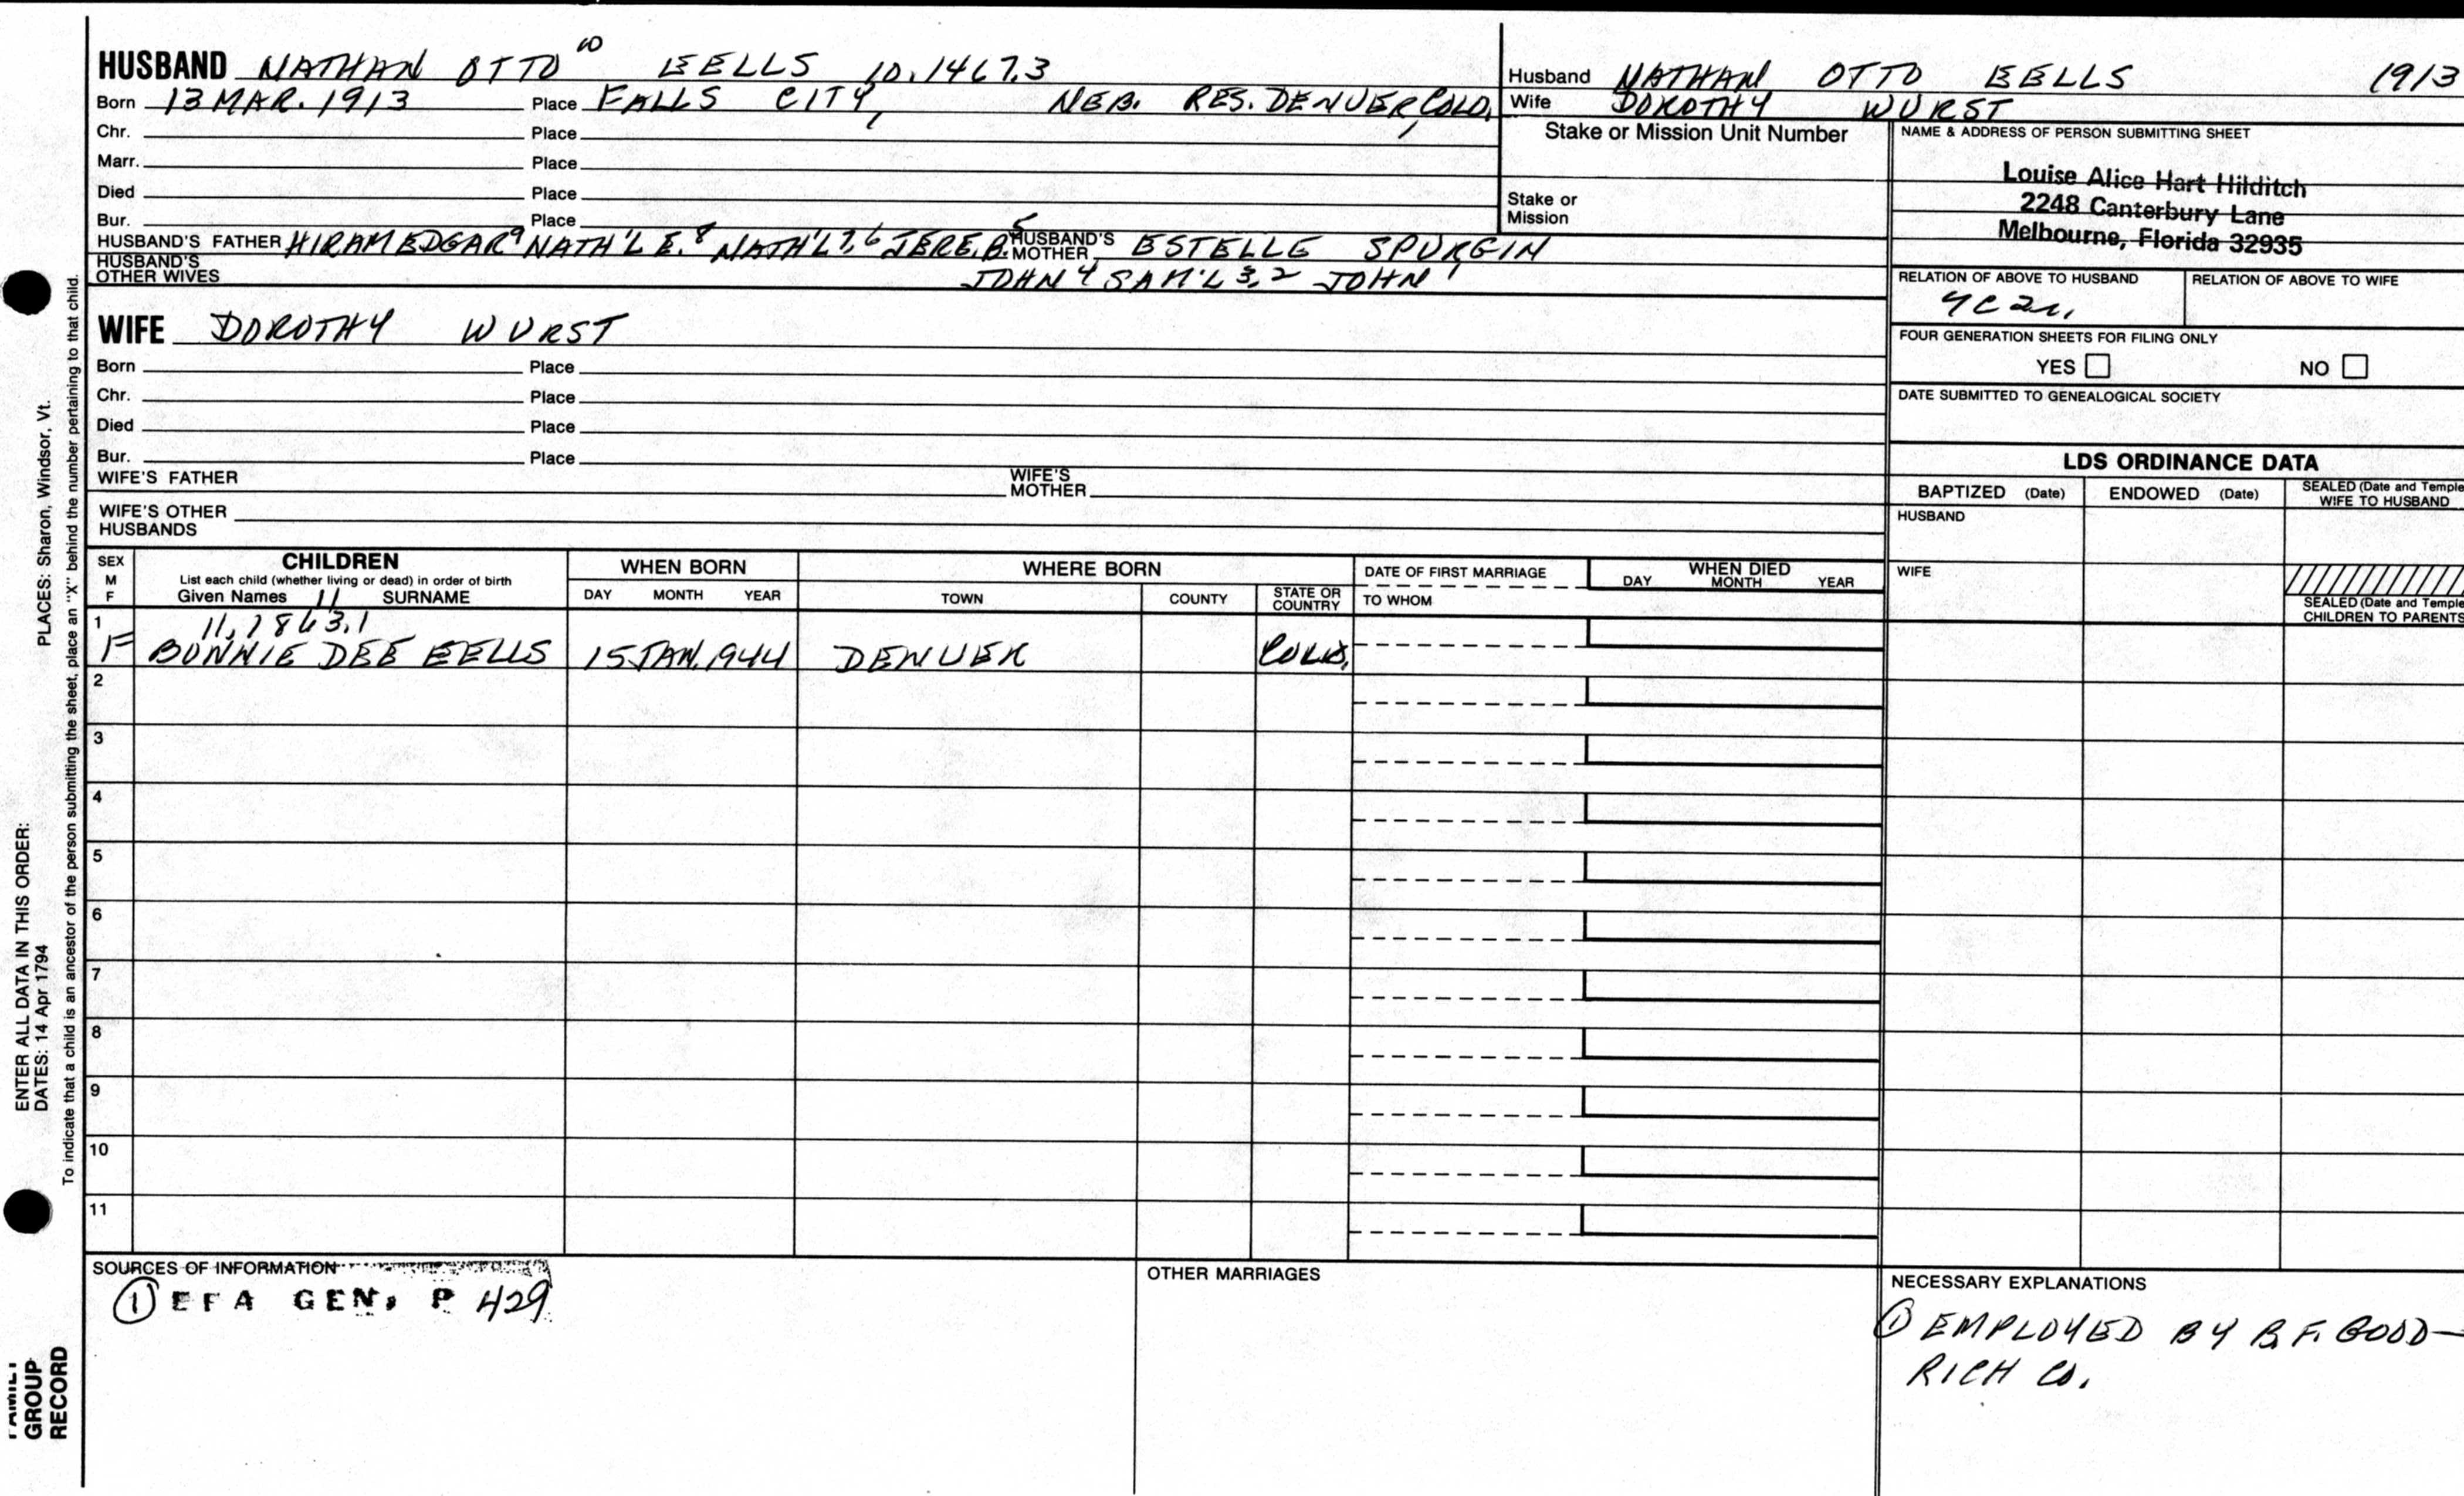 HUSBAND NATHAN OTTO 10 EELLS 10.1467.3
Born 13 MAR. 1913 Place FALLS CITY, NEB. RES. DENVER, COLO.
Chr. Place
Marr. Place
Died Place
Bur. Place
HUSBAND'S FATHER HIRAM EDGAR 9 NATH'L E. 8 NATH'L 7,6 JERE. B. 5 HUSBAND'S MOTHER ESTELLE SPURGIN
HUSBAND'S OTHER WIVES JOHN 4 SAM'L 3,2 JOHN 1
WIFE DOROTHY WURST
Born Place
Chr. Place
Died Place
Bur. Place
WIFE'S FATHER WIFE'S MOTHER
WIFE'S OTHER HUSBANDS
Husband NATHAN OTTO EELLS 1913
Wife DOROTHY WURST
Stake or Mission Unit Number
Stake or Mission
NAME & ADDRESS OF PERSON SUBMITTING SHEET
Louise Alice Hart Hilditch
2248 Canterbury Lane
Melbourne, Florida 32935
RELATION OF ABOVE TO HUSBAND RELATION OF ABOVE TO WIFE
FOUR GENERATION SHEETS FOR FILING ONLY
YES NO
DATE SUBMITTED TO GENEALOGICAL SOCIETY
LDS ORDINANCE DATA
BAPTIZED (Date) ENDOWED (Date) SEALED (Date and Temple
WIFE TO HUSBAND
HUSBAND
WIFE
SEALED (Date and Temple
CHILDREN TO PARENTS
SEX
M
F
CHILDREN
List each child (whether living or dead) in order of birth
Given Names 11 SURNAME
WHEN BORN
DAY MONTH YEAR
WHERE BORN
TOWN COUNTY STATE OR COUNTRY
DATE OF FIRST MARRIAGE
TO WHOM
WHEN DIED
DAY MONTH YEAR
1 11,1863.1
F BONNIE DEE EELLS 15 JAN. 1944 DENVER COLO.
2
3
4
5
6
7
8
9
10
11
SOURCES OF INFORMATION
① EFA GEN, P 429
OTHER MARRIAGES
NECESSARY EXPLANATIONS
① EMPLOYED BY B.F. GOOD-
RICH CO.
PLACES: Sharon, Windsor, Vt.
ENTER ALL DATA IN THIS ORDER:
DATES: 14 Apr 1794
To indicate that a child is an ancestor of the person submitting the sheet, place an "X" behind the number pertaining to that child.
FAMILY
GROUP
RECORD